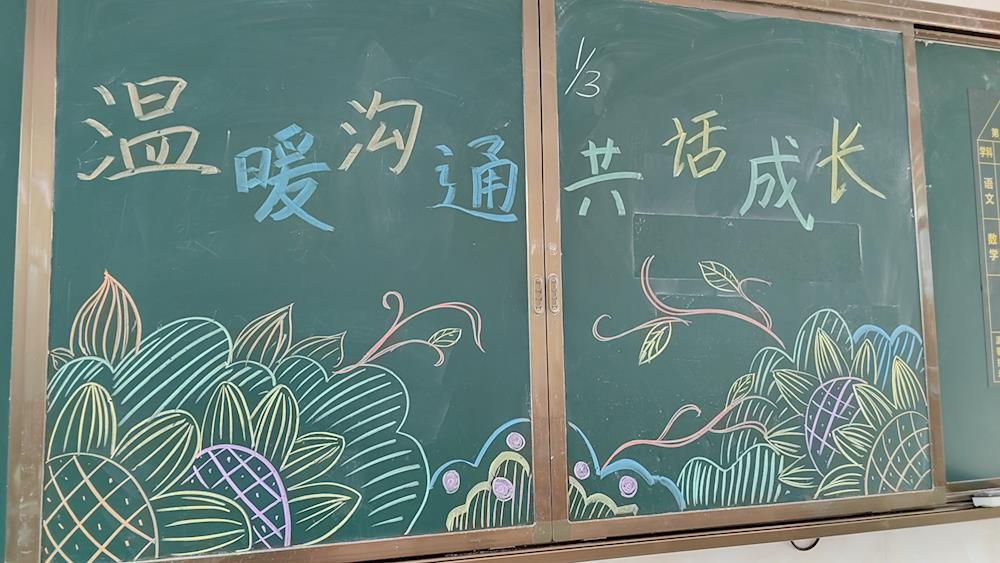 温暖沟通 共话成长
1/3
第
学科
语文
数学